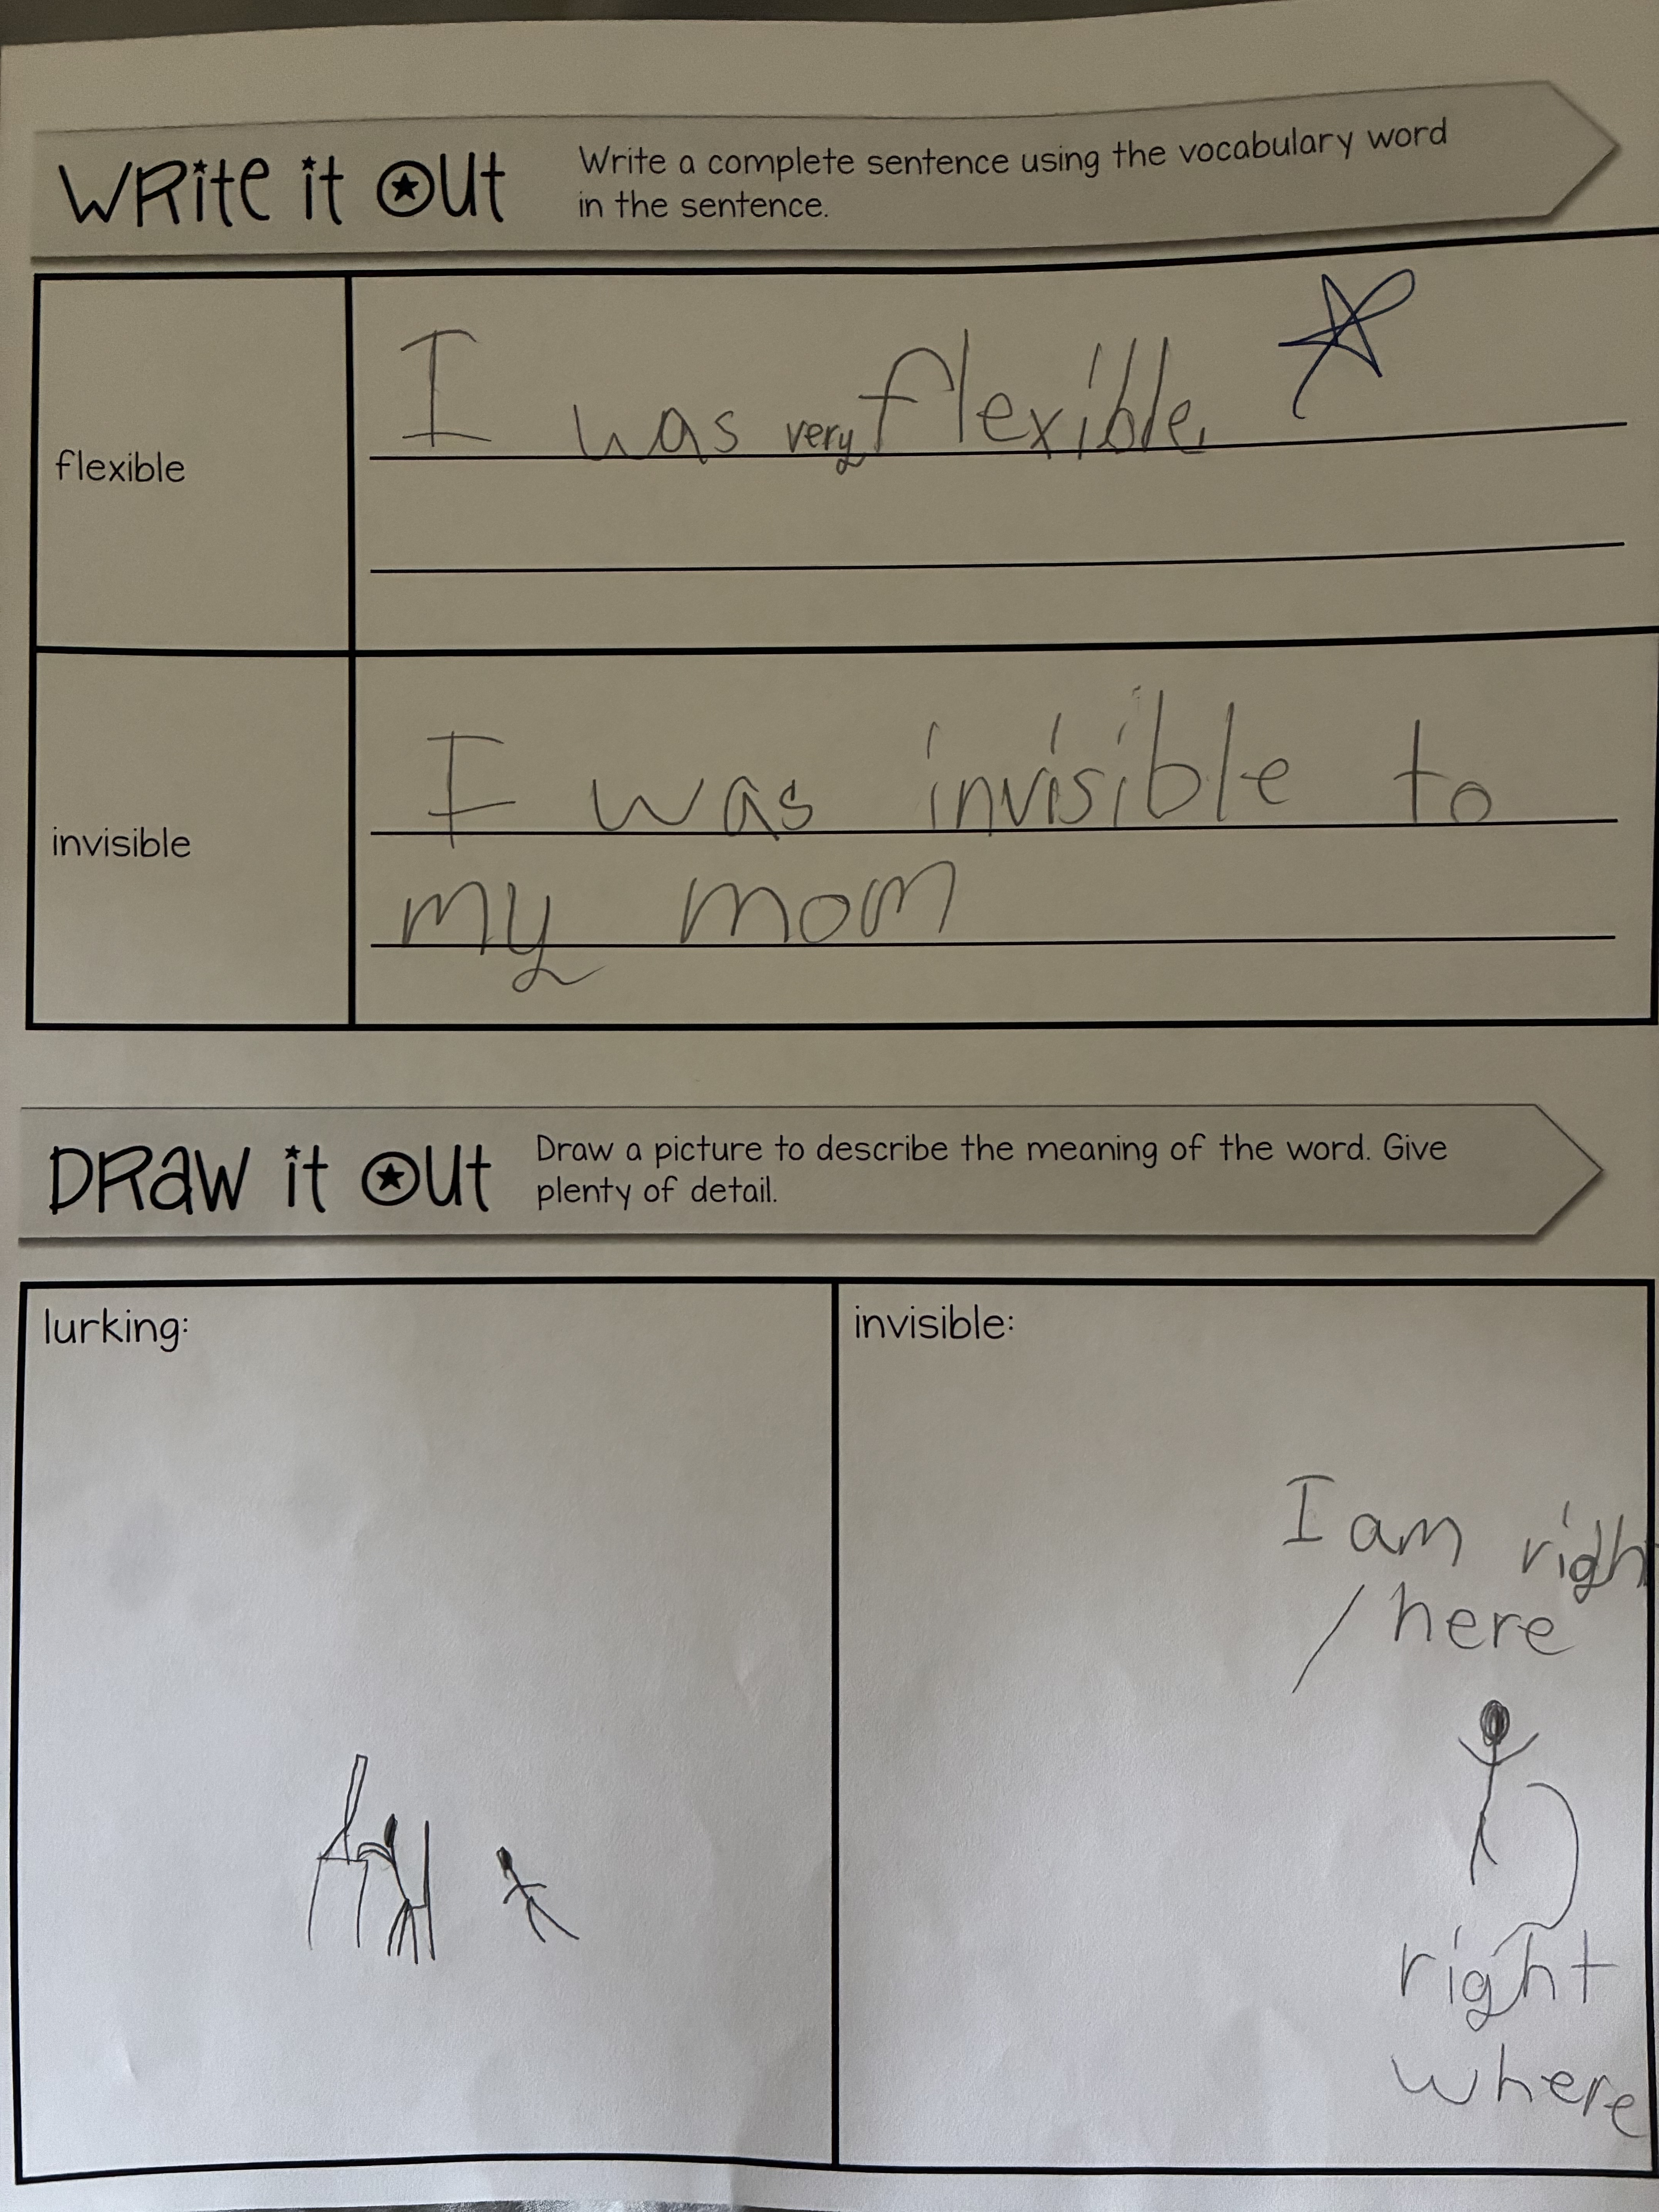 WRite it Out
Write a complete sentence using the vocabulary word
in the sentence.
flexible
I was very flexible.
invisible
I was invisible to
my mom
DRaw it Out
Draw a picture to describe the meaning of the word. Give
plenty of detail.
lurking:
invisible:
I am righ
here
right
where